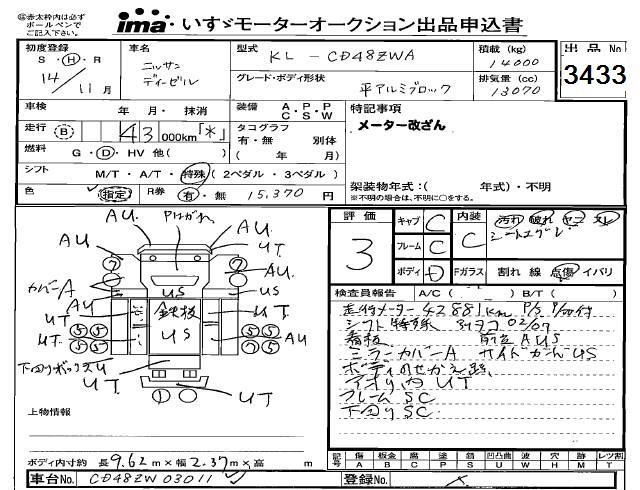 ㊟赤太枠内は必ず
ボールペンで
ご記入下さい。
ima いすゞモーターオークション出品申込書
初度登録
S・H・R
14/11月
車名
ニッサン
ディーゼル
型式
KL-CD48ZWA
グレード・ボディ形状
平アルミブロック
積載 (kg)
14000
排気量 (cc)
13070
出品No
3433
車検 年・月・抹消
走行 B 43 000km「*」
燃料 G・D・HV 他( )
シフト M/T・A/T・特殊(2ペダル・3ペダル)
色 指定 R券 有・無 15,370 円
装備 A・P・P
C S W
タコグラフ
有・無 別体
( 年 月)
特記事項
メーター改ざん
架装物年式:( 年式)・不明
※不明の場合は、不明に○をする。
評価
3
キャブ C
フレーム C
ボディ D
内装 C
汚れ 破れ ヤニ スレ
Fガラス 割れ 線 点傷 イバリ
検査員報告 A/C( ) B/T( )
走行メーター 42881km P/S P/O付
シフト特殊 タコ 02/07
看板 前立AUS
ミラーカバーA サイドガードUS
ボディのせかえ跡
アオリ内 UT
フレームSC
下回りSC
AU. AU.
AU UT
カバーA AU.
AU US
UT 鉄板 UT
UT US AU
下回りボックスU
UT UT
上物情報
ボディ内寸約 長9.62m×幅2.37m×高 m
車台No. CD48ZW03011
登録No.
記号 傷 板金 腐 塗 錆 凹凸曲 波 穴 跡 レツ割
A B C P S U W H M T